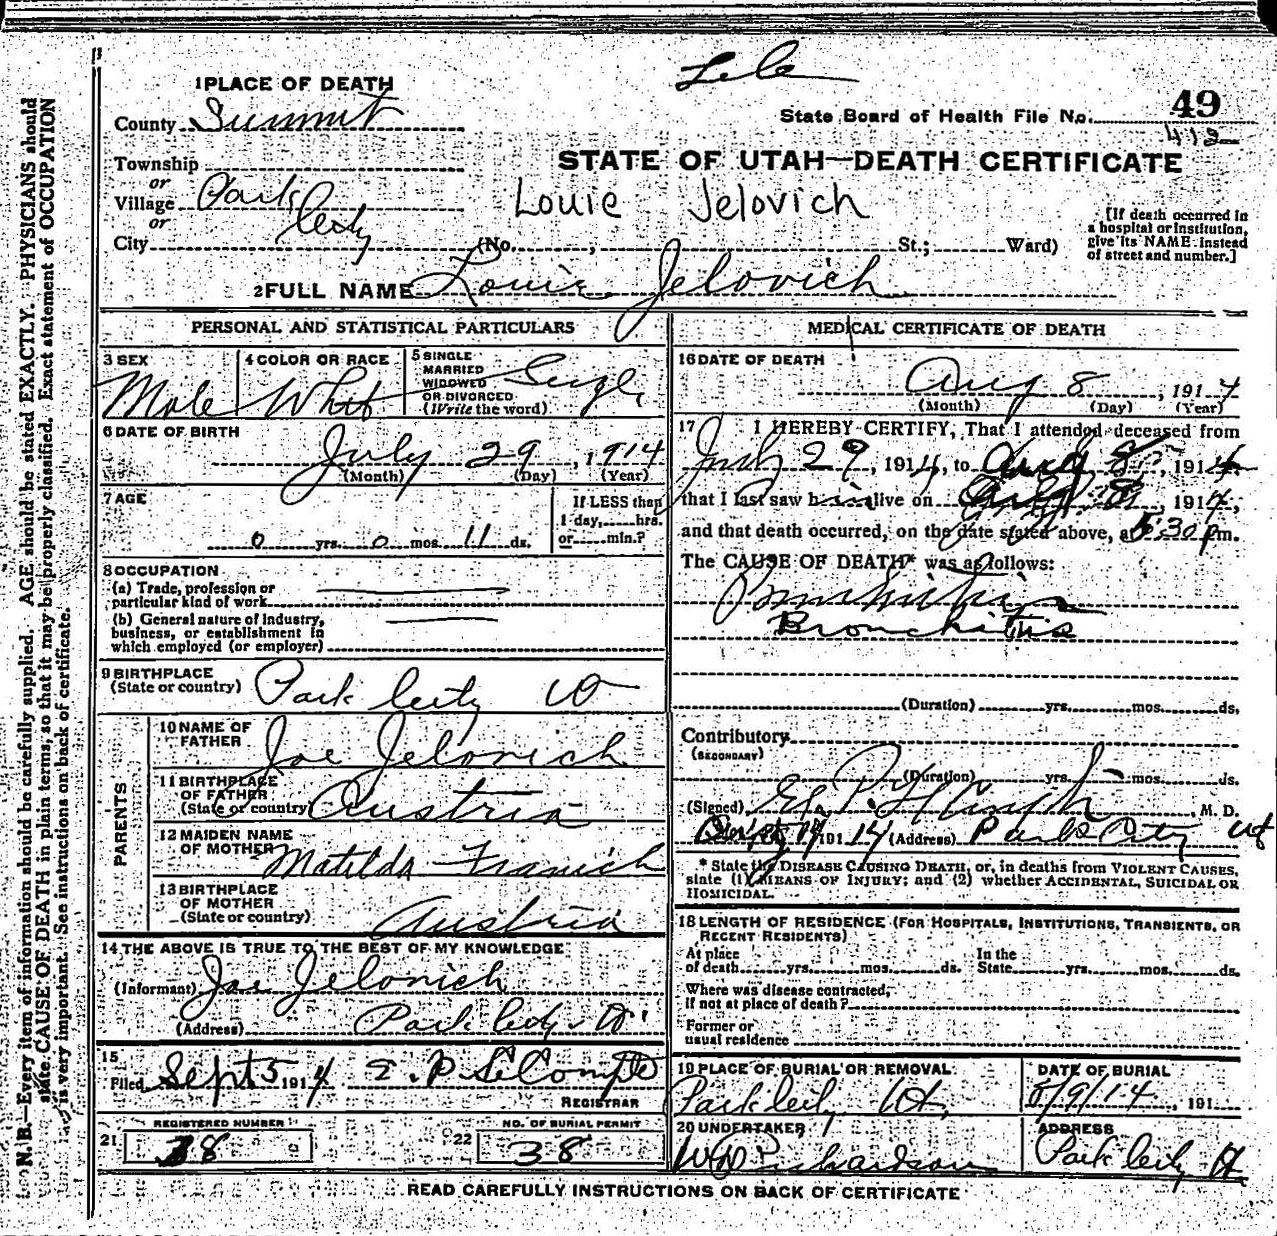 1 PLACE OF DEATH
County Summit
State Board of Health File No. 49
412
Township
or
Village Park City
or
City (No. , St.; Ward)
STATE OF UTAH—DEATH CERTIFICATE
Louie Jelovich
[If death occurred in
a hospital or institution,
give its NAME instead
of street and number.]
2 FULL NAME Louie Jelovich
PERSONAL AND STATISTICAL PARTICULARS
3 SEX
Male
4 COLOR OR RACE
Whit
5 SINGLE
MARRIED
WIDOWED
OR DIVORCED
(Write the word)
Single
6 DATE OF BIRTH
July 29, 1914
(Month) (Day) (Year)
7 AGE
0 yrs. 0 mos. 11 ds.
If LESS than
1 day, hrs.
or min.?
8 OCCUPATION
(a) Trade, profession or
particular kind of work
(b) General nature of industry,
business, or establishment in
which employed (or employer)
9 BIRTHPLACE
(State or country) Park City Ut
PARENTS
10 NAME OF
FATHER Joe Jelovich
11 BIRTHPLACE
OF FATHER
(State or country) Austria
12 MAIDEN NAME
OF MOTHER Matilda Franich
13 BIRTHPLACE
OF MOTHER
(State or country) Austria
14 THE ABOVE IS TRUE TO THE BEST OF MY KNOWLEDGE
(Informant) Joe Jelovich
(Address) Park City Ut
15
Filed Sept 5 1914 E. P. LeCompte
REGISTRAR
REGISTERED NUMBER
21 38
NO. OF BURIAL PERMIT
22 38
MEDICAL CERTIFICATE OF DEATH
16 DATE OF DEATH
Aug 8, 1914
(Month) (Day) (Year)
17 I HEREBY CERTIFY, That I attended deceased from
July 29, 1914, to Aug 8, 1914
that I last saw him alive on Aug 8, 1914,
and that death occurred, on the date stated above, at 5:30 pm.
The CAUSE OF DEATH* was as follows:
Bronchitis
Bronchitis
(Duration) yrs. mos. ds.
Contributory
(SECONDARY)
(Duration) yrs. mos. ds.
(Signed) , M. D.
1914 (Address) Park City Ut
* State the DISEASE CAUSING DEATH, or, in deaths from VIOLENT CAUSES,
state (1) MEANS OF INJURY; and (2) whether ACCIDENTAL, SUICIDAL OR
HOMICIDAL.
18 LENGTH OF RESIDENCE (FOR HOSPITALS, INSTITUTIONS, TRANSIENTS, OR
RECENT RESIDENTS)
At place
of death yrs. mos. ds.
In the
State yrs. mos. ds.
Where was disease contracted,
if not at place of death?
Former or
usual residence
19 PLACE OF BURIAL OR REMOVAL
Park City Ut,
DATE OF BURIAL
8/9/14, 191
20 UNDERTAKER
Richardson
ADDRESS
Park City Ut
READ CAREFULLY INSTRUCTIONS ON BACK OF CERTIFICATE
N. B.—Every item of information should be carefully supplied. AGE should be stated EXACTLY. PHYSICIANS should
state CAUSE OF DEATH in plain terms, so that it may be properly classified. Exact statement of OCCUPATION
is very important. See instructions on back of certificate.